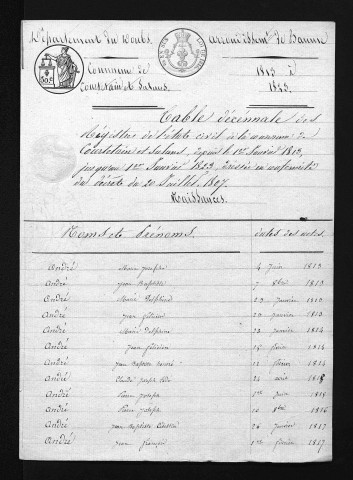 Département du Doubs arrondissem.t de Baume
Commune de 1813 à
Courtetain et Salans 1823.
Table décennale des
Régistres de l'état civil de la commune de
Courtetain et Salans, depuis le 1er Janvier 1813,
jusqu'au 1er Janvier 1823, dressée en conformité
du décret du 20 Juillet 1807.
Naissances.
Noms et Prénoms. dates des actes.
André Marie Josephe 4 Juin 1813
André Jean Baptiste 7 8bre 1813
André Marie Delphine 29 Janvier 1813
André Jean félicien 20 Janvier 1813
André Marie 23 Janvier 1814
André Jean félicien 15 1814
André Jean Baptiste 12 février 1814
André Claude Joseph 24 avril 1815
André Pierre Joseph 1er Juin 1815
André Pierre Joseph 10 8bre 1816
André Jean Baptiste 26 Janvier 1817
André Jean françois 1er février 1817